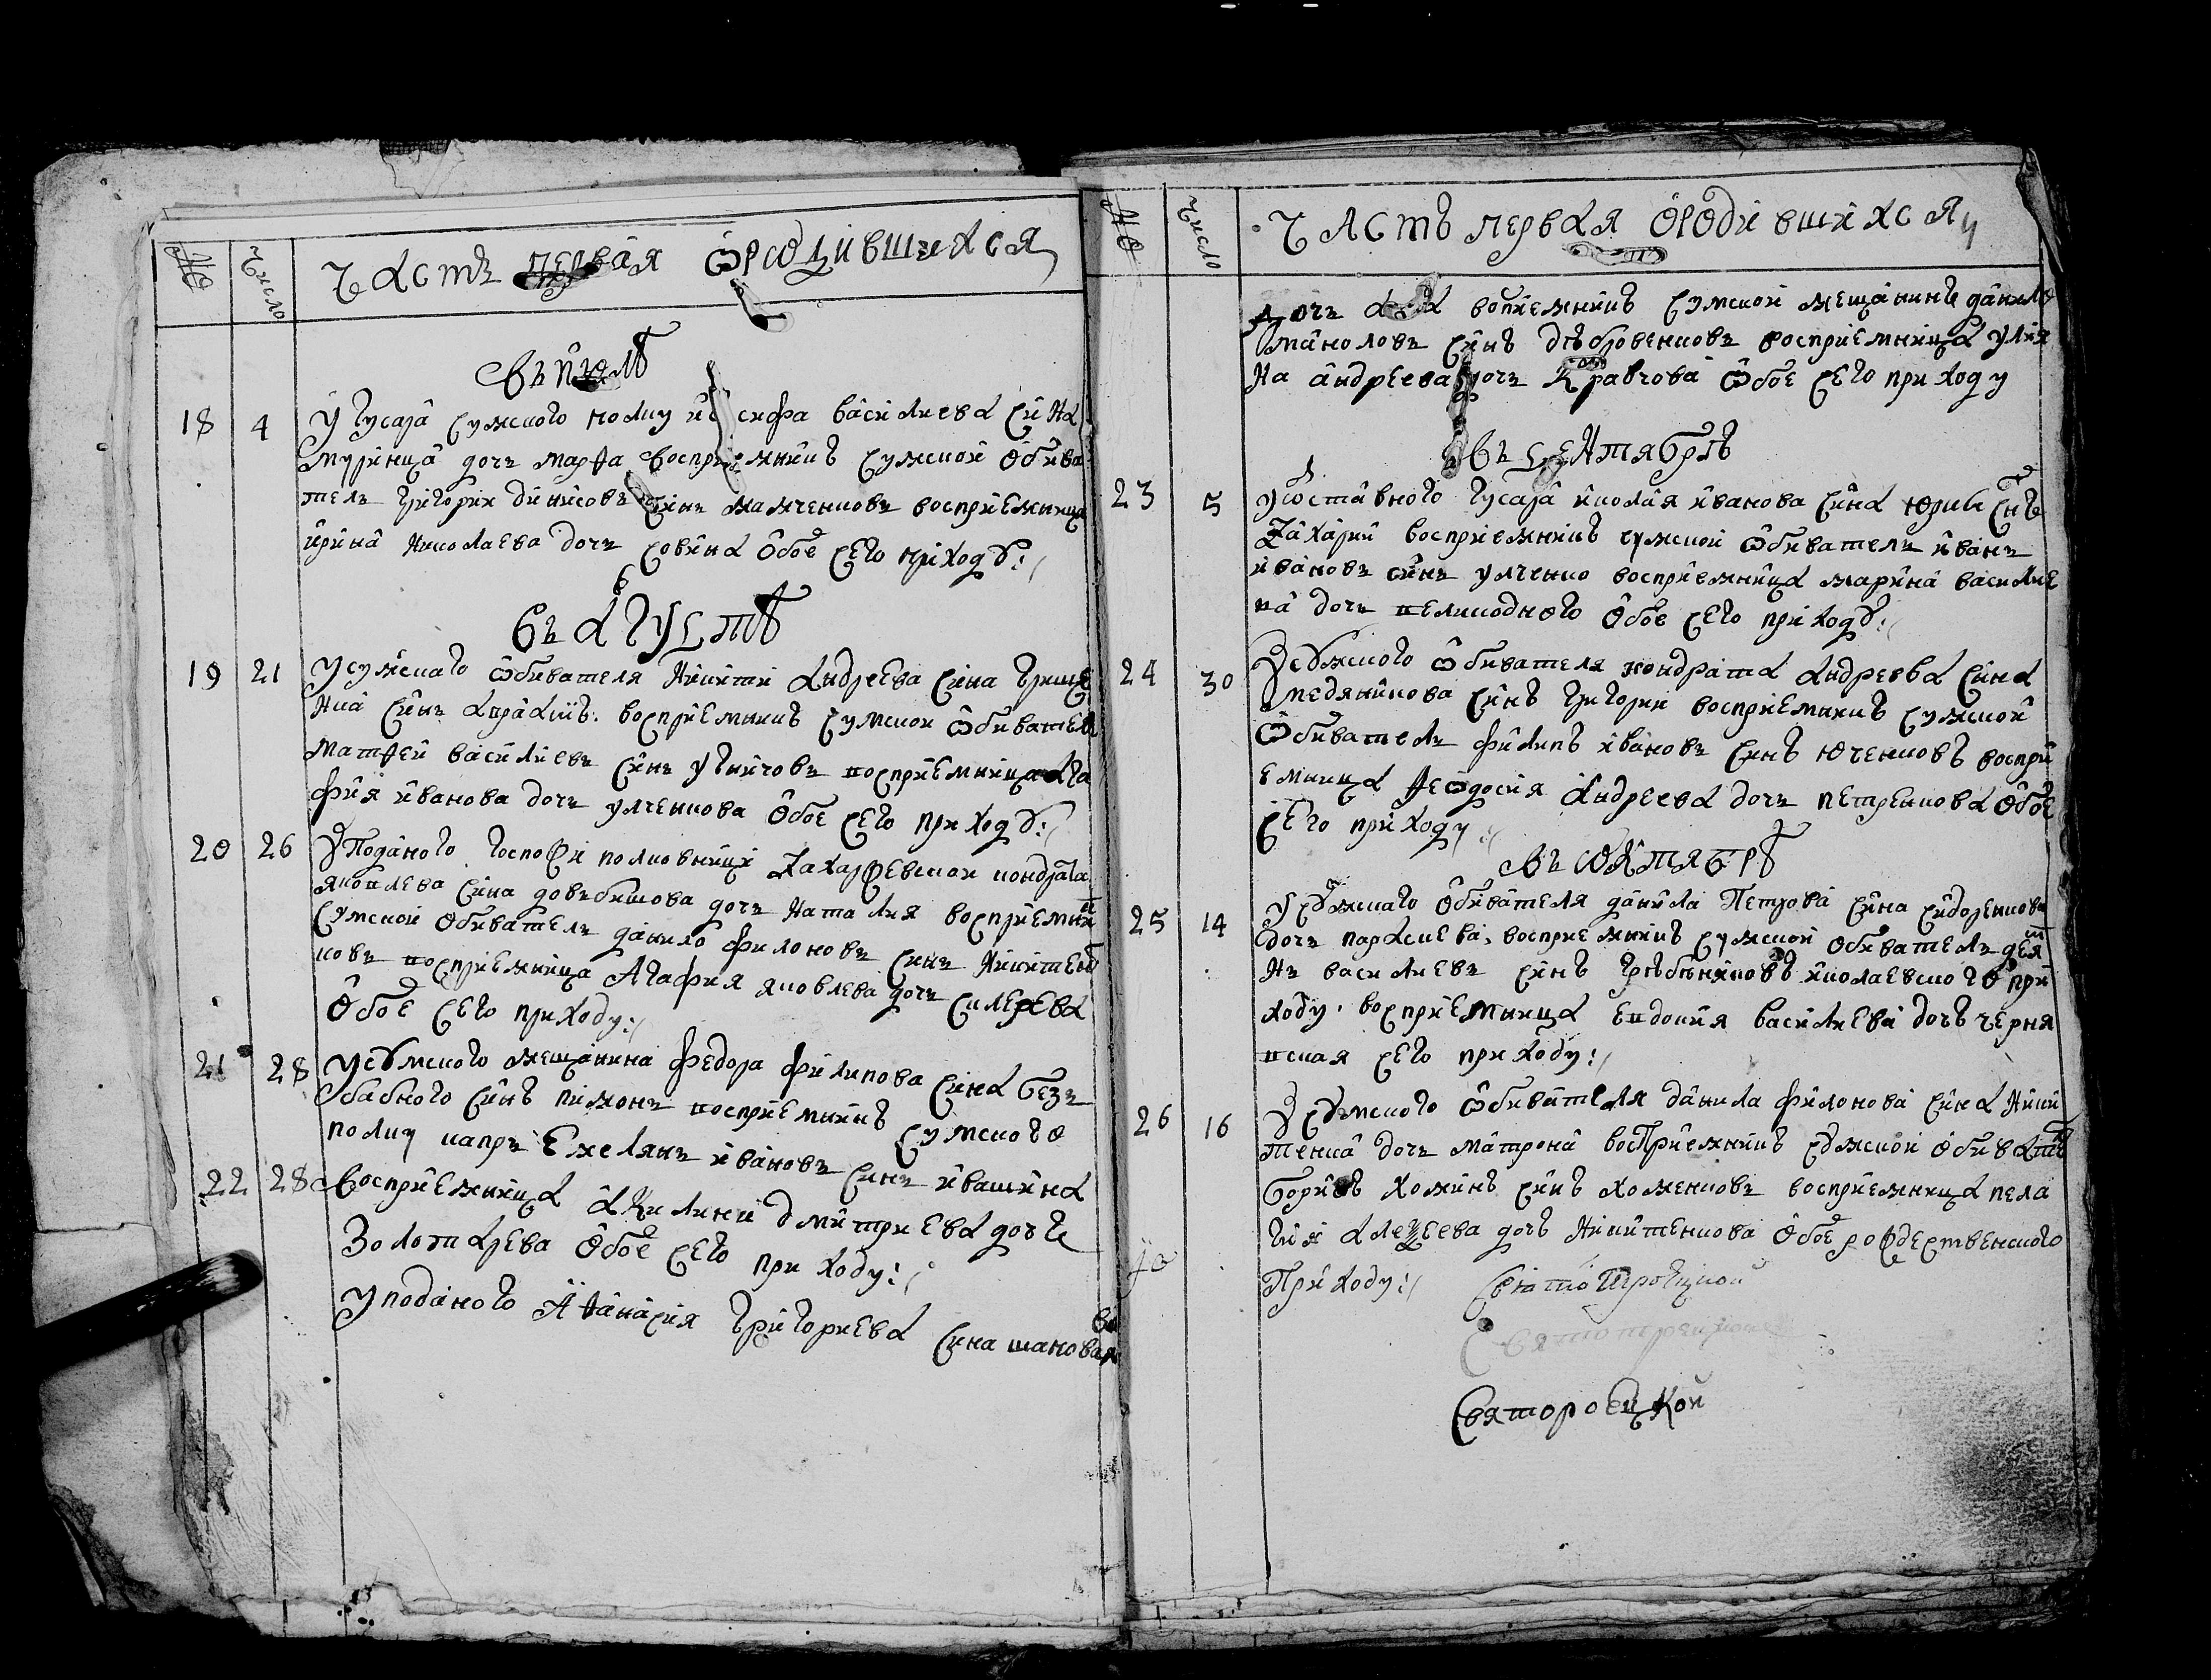 № число Часть первая ѡродившихся
въ июлѣ
18 4 У гусара сумского полку иѡсифа василиева сина
дочь марѳа восприемникъ сумской обива
тель григорий динисовъ синъ мамченковъ восприемница
ирина николаева дочь совина обое сего приходꙋ:
въ августѣ
19 21 У сумскаго ѡбивателя никити андреева сина грище
нка синъ восприемникъ сумской ѡбиватель
матѳей василиевъ синъ восприемница ага
фия иванова дочь улченкова обое сего приходꙋ:
20 26 У поданого госпожи полковници захаржевской кондрата
яковлева сина довбишова дочь наталия восприемникъ
сумской обиватель данило филоновъ синъ никитен
ковъ восприемница агафия яковлева дочь
обое сего приходу:
21 28 У сꙋмского мещанина федора филипова сина без
бабного синъ пимонъ восприемникъ сумского
полку капралъ емелянъ ивановъ синъ ивашина
22 28 восприемница акилина дмитриева дочь
золотарева обое сего приходу:
У поданого аѳанасия григориева сина шаповал
№ число Часть первая ѡродившихся
дочь восприемникъ сумской мещанинъ данило
мановъ синъ восприемница улия
на андреева дочь кравчова ѡбое сего приходу
въ сентябрѣ
23 5 У отставного гусара николая иванова сина синъ
захарий восприемникъ сумской ѡбиватель иванъ
ивановъ синъ улченко восприемница марина василие
ва дочь обое сего приходꙋ:
24 30 У сꙋмского ѡбивателя кондрата андреева сина
медяникова синъ григорий восприемникъ сумской
ѡбиватель филипъ ивановъ синъ юченковъ воспри
емница ѳеѡдосия андреева дочь петренкова обое
сего приходу
въ ѡктябрѣ
25 14 У сꙋмскаго обивателя данила петрова сина сидоренкова
дочь параскева, восприемникъ сумской обиватель
василиевъ синъ гребѣниковъ николаевского при
ходу, восприемница евдокия василиева дочь черня
вская сего приходу:
26 16 У сꙋмского ѡбивателя данила филонова сина ники
тенка дочь матрона восприемникъ сꙋмской обиватель
борисъ хоминъ синъ хоменковъ восприемница пела
гия алеѯеева дочь никитенкова обое рождественского
приходу: Свято Троецкой
Святотроецкой
Святороецкой